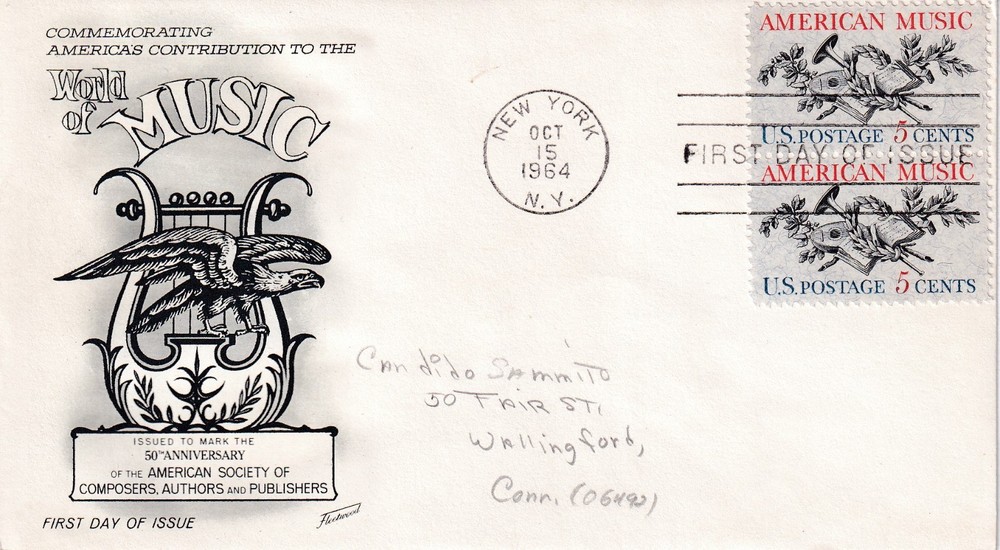 COMMEMORATING
AMERICA'S CONTRIBUTION TO THE
World
of MUSIC
ISSUED TO MARK THE
50TH ANNIVERSARY
OF THE AMERICAN SOCIETY OF
COMPOSERS, AUTHORS AND PUBLISHERS
FIRST DAY OF ISSUE
Fleetwood
NEW YORK
OCT
15
1964
N.Y.
AMERICAN MUSIC
U.S. POSTAGE 5 CENTS
FIRST DAY OF ISSUE
AMERICAN MUSIC
U.S. POSTAGE 5 CENTS
Candido Sammito
50 FAIR ST.
Wallingford,
Conn. (06492)